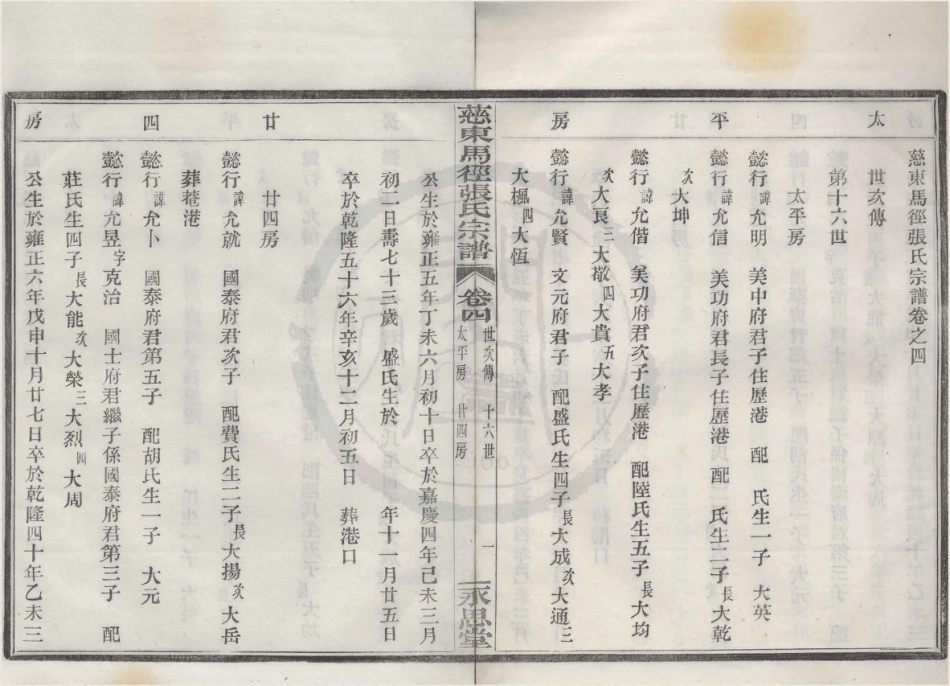 慈東馬徑張氏宗譜卷之四
太　世次傳
第十六世
太平房
平　懿行諱允明　美中府君子住歷港　配　氏生一子　大英
懿行諱允信　美功府君長子住歷港　配　氏生二子長大乾
次大坤
懿行諱允偕　美功府君次子住歷港　配陸氏生五子長大均
次大良三大敬四大貴五大孝
房　懿行諱允賢　文元府君子　配盛氏生四子長大成次大通三
大楓四大恆
慈東馬徑張氏宗譜　卷四　世次傳　十六世　太平房　廿四房　一　永思堂
公生於雍正五年丁未六月初十日卒於嘉慶四年己未三月
初二日壽七十三歲　盛氏生於　年十一月廿五日
卒於乾隆五十六年辛亥十二月初五日　葬港口
廿　廿四房
懿行諱允就　國泰府君次子　配費氏生二子長大揚次大岳
葬菴港
四　懿行諱允卜　國泰府君第五子　配胡氏生一子　大元
懿行諱允昱字克治　國士府君繼子係國泰府君第三子　配
莊氏生四子長大能次大榮三大烈四大周
房　公生於雍正六年戊申十月廿七日卒於乾隆四十年乙未三